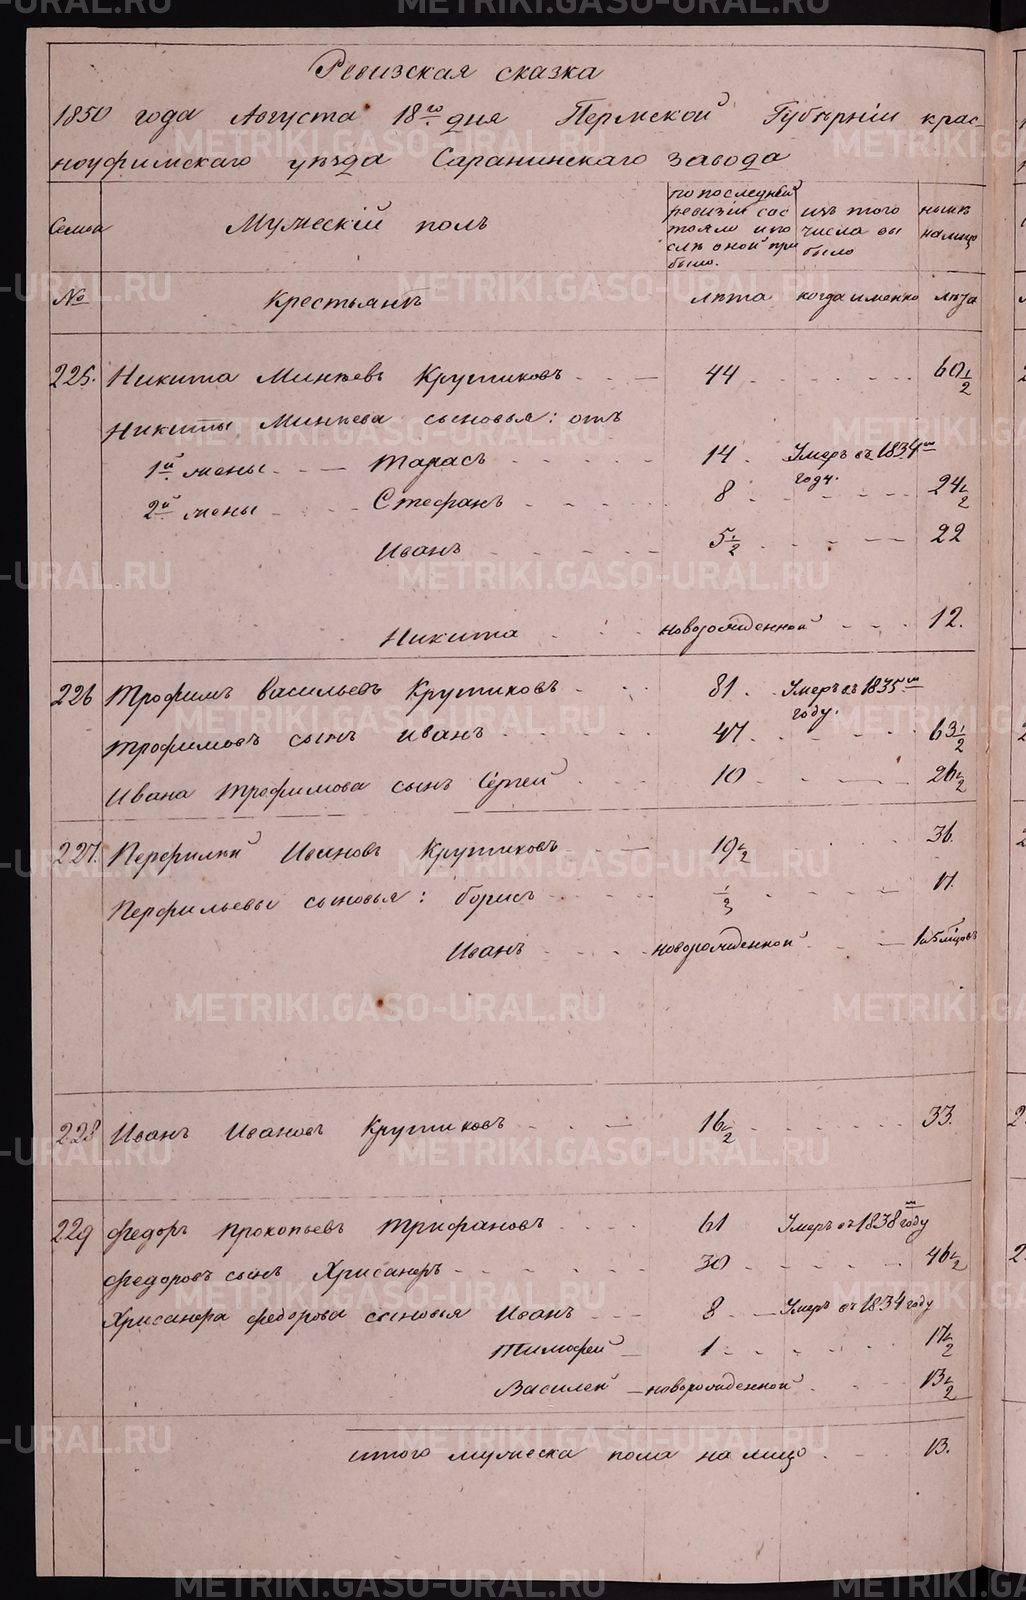 Ревизская сказка
1850 года Августа 18го дня Пермской Губерніи крас-
ноуфимскаго уѣзда Саранинскаго завода
Семьи
Мужескій полъ
по последней ревизіи состояло и после оной прибыло.
изъ того числа выбыло
нынѣ на лицо
№
Крестьянъ
лѣта
когда именно
лѣта
225. Никита Минѣевъ Крутиковъ 44 60 1/2
Никиты Минѣева сыновья: отъ
1й жены Тарасъ 14. Умеръ въ 1834м году.
2й жены Стефанъ 8 24 1/2
Иванъ 5 1/2 22
Никита новорожденной 12.
226 Трофимъ Васильевъ Крутиковъ 81. Умеръ въ 1835м году.
Трофимовъ сынъ Иванъ 47 63 1/2
Ивана Трофимова сынъ Сергей 10 26 1/2
227. Перфилий Ивановъ Крутиковъ 19 1/2 36.
Перфильевы сыновья: Борисъ 1/3 17.
Иванъ новорожденной 1 и 5 мѣцовъ
228 Иванъ Ивановъ Крутиковъ 16 1/2 33.
229 Федоръ Прокопьевъ Трифановъ 61 Умеръ въ 1838м году
Федоровъ сынъ Хрисанфъ 30 46 1/2
Хрисанфа Федорова сыновья Иванъ 8 Умеръ въ 1834 году
Тимофей 1 17 1/2
Василей новорожденной 13 1/2
итого мужеска пола на лицо 13.
METRIKI.GASO-URAL.RU